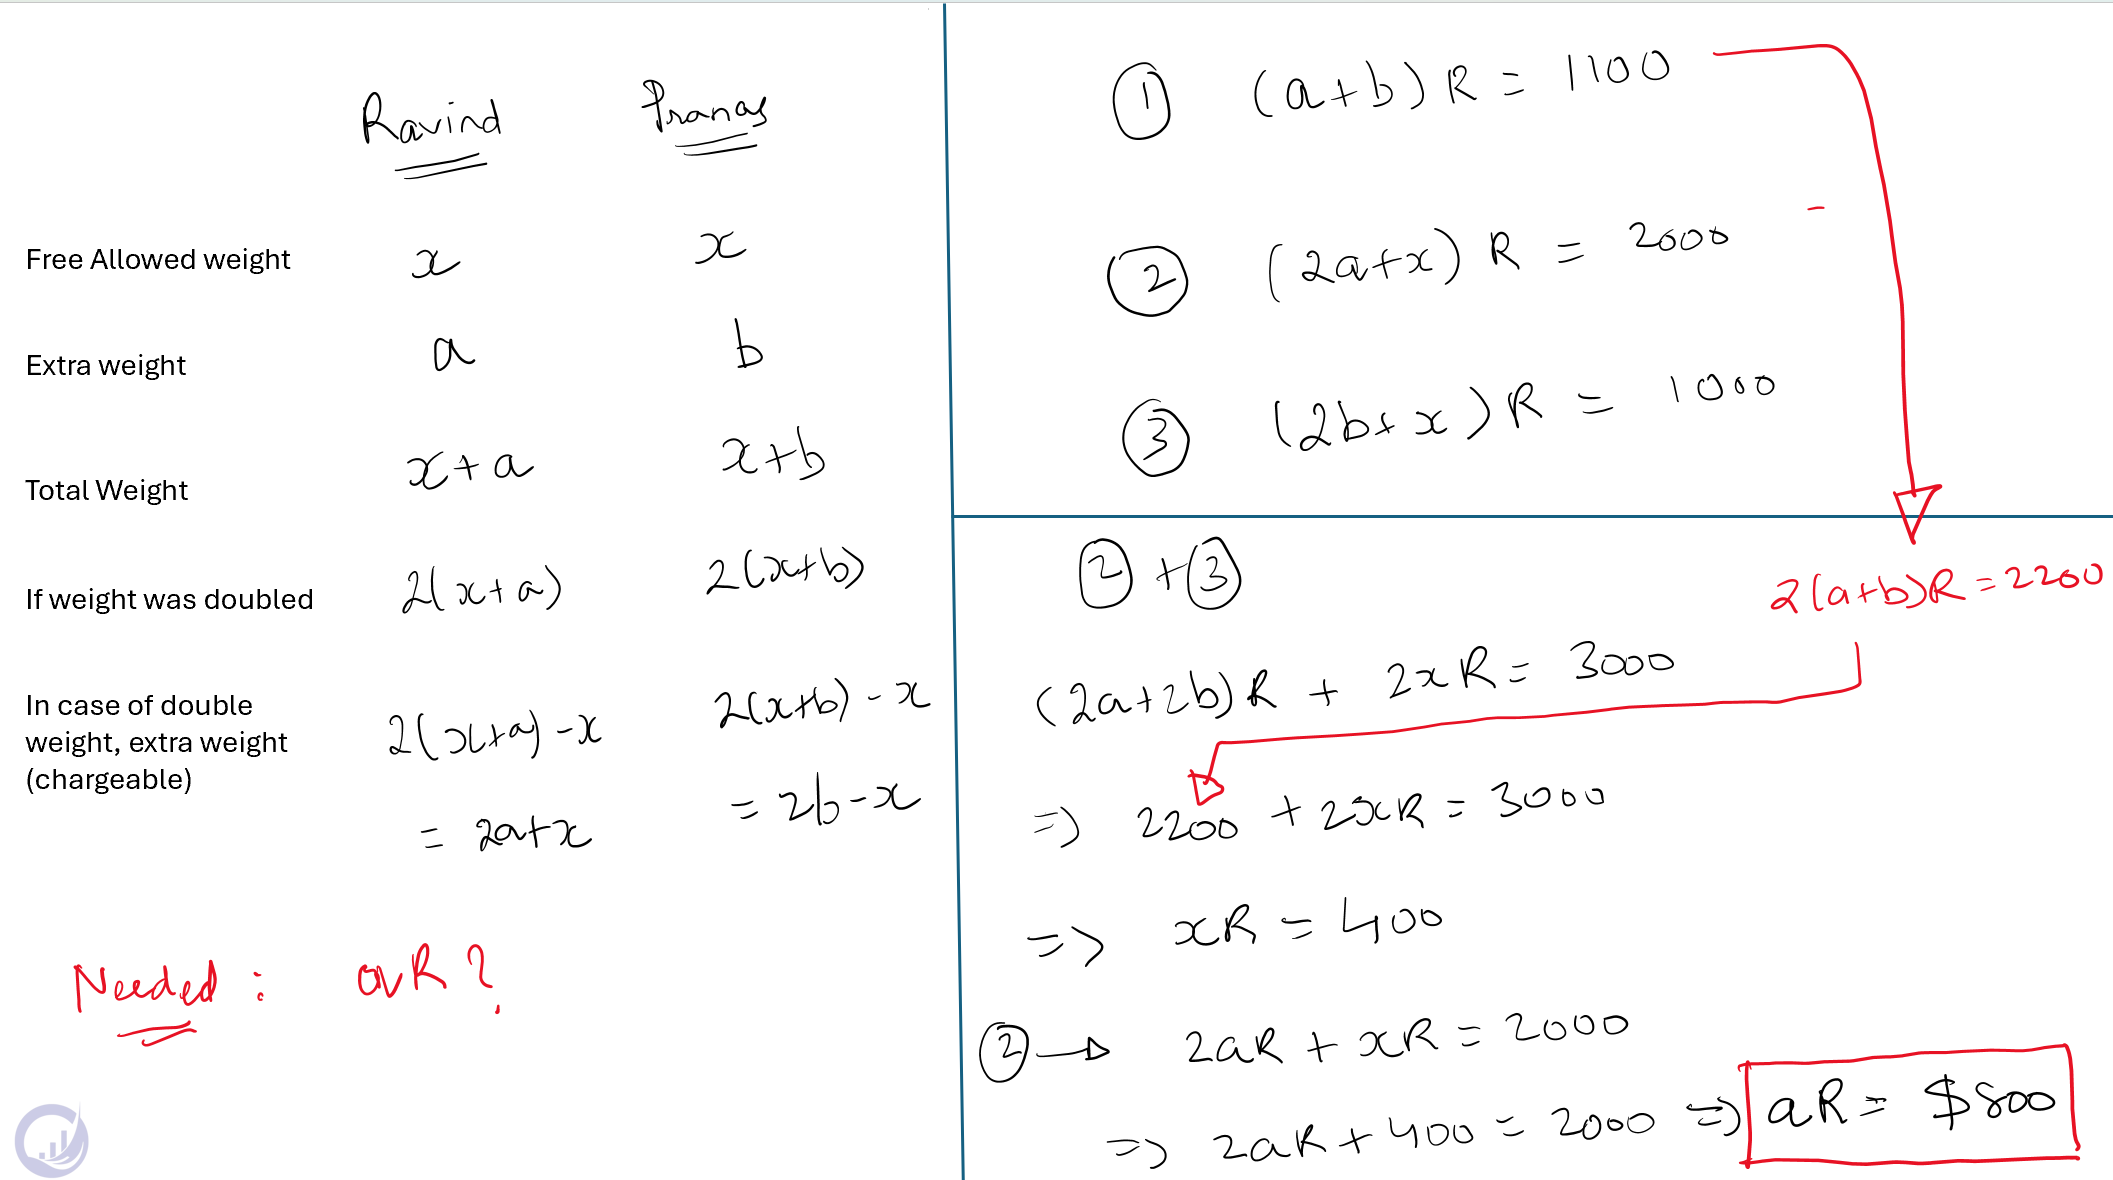 Ravind Pranav
Free Allowed weight x x
Extra weight a b
Total Weight x+a x+b
If weight was doubled 2(x+a) 2(x+b)
In case of double
weight, extra weight
(chargeable) 2(x+a)-x 2(x+b)-x
= 2a+x = 2b-x
Needed: aR?
① (a+b)R = 1100
② (2a+x)R = 2000
③ (2b+x)R = 1000
②+③
2(a+b)R=2200
(2a+2b)R + 2xR = 3000
=> 2200 + 2xR = 3000
=> xR = 400
②→ 2aR + xR = 2000
=> 2aR + 400 = 2000 => aR = $800